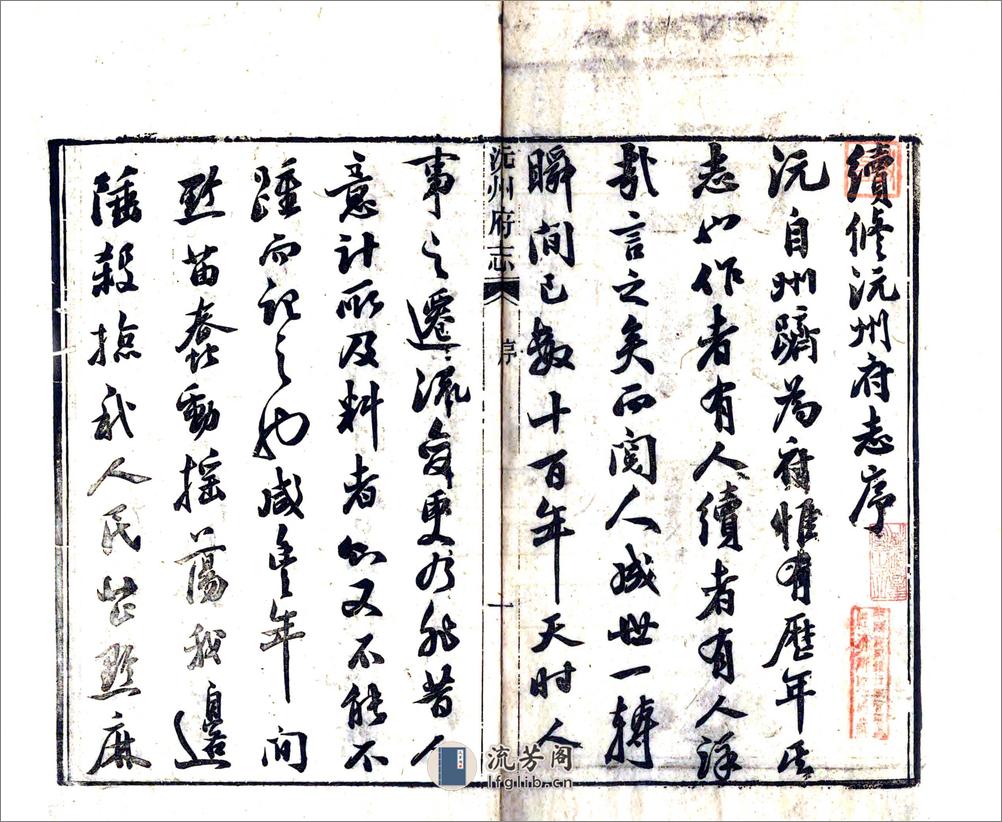 續修沅州府志序
沅自州躋為府惟有歷年所
志如作者有人續者有人詳
哉言之矣而閱人成世一轉
瞬間已數十百年天时人
沅州府志
序
一
事之遷流變更為非昔人
意計所及料者且又不能不
踵而記之也咸豐年間
黔苗蠢動搖蕩我邊
陲殺掠我人民出黔麻
流芳阁
lfglib.cn